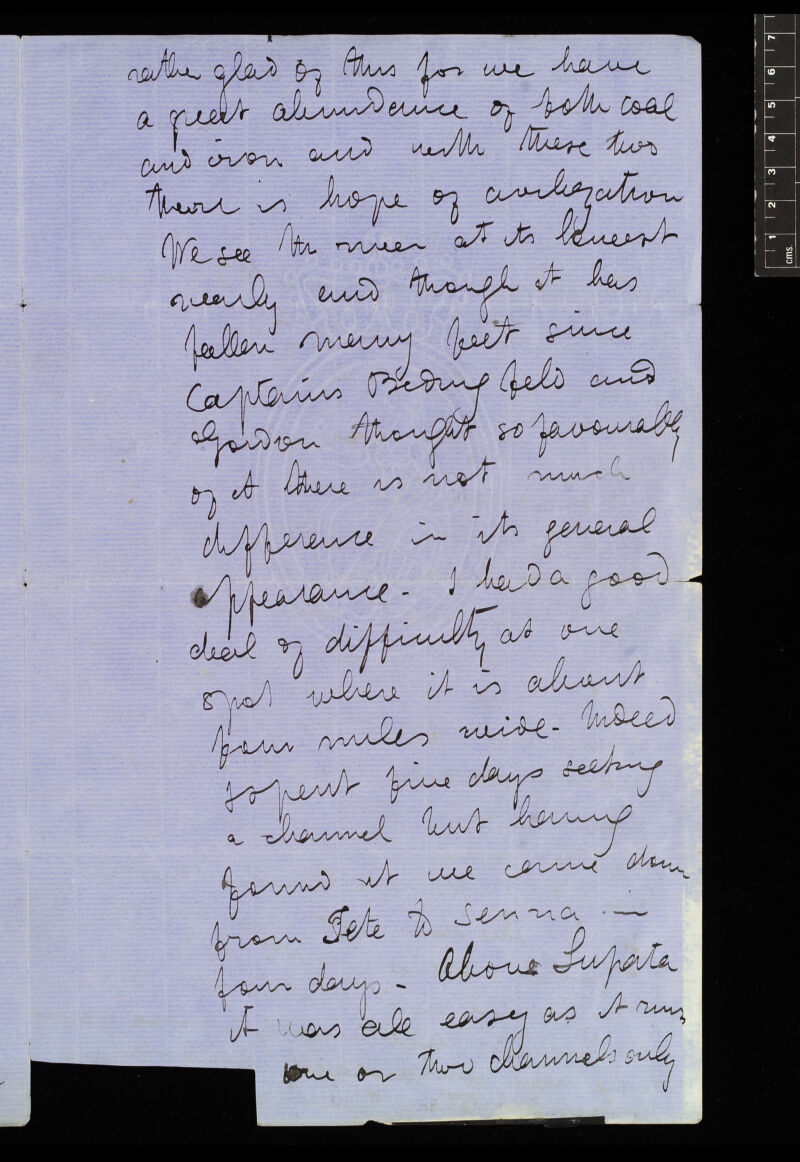 rather glad of this for we have
a great abundance of both coal
and iron and with these two
there is hope of civilization
We see the river at its lowest
nearly and though it has
fallen many feet since
Captains Bedingfeld and
Gordon thought so favourably
of it there is not much
difference in its general
appearance - I had a good
deal of difficulty at one
spot where it is about
four miles wide - Indeed
I spent five days seeking
a channel but having
found it we came down
from Tete to Senna in
four days - Above Lupata
it was all easy as it runs
one or two channels only
cms. 1 2 3 4 5 6 7